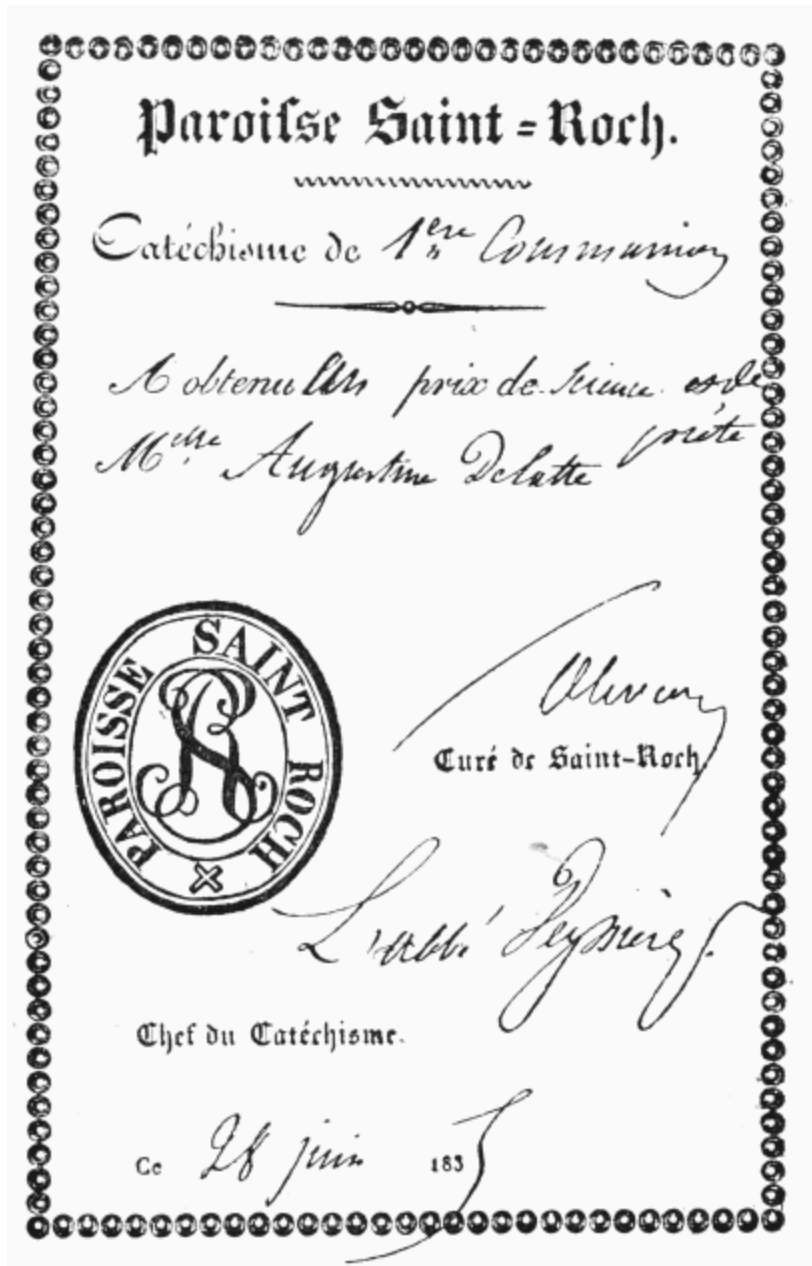 Paroiſse Saint=Roch.
Catéchisme de 1ère Communion
A obtenu prix de science et de
piété
Melle Augustine Delatte
PAROISSE SAINT ROCH
SR
Olivier
Curé de Saint-Roch
L'abbé
Chef du Catéchisme.
Ce 28 juin 1835